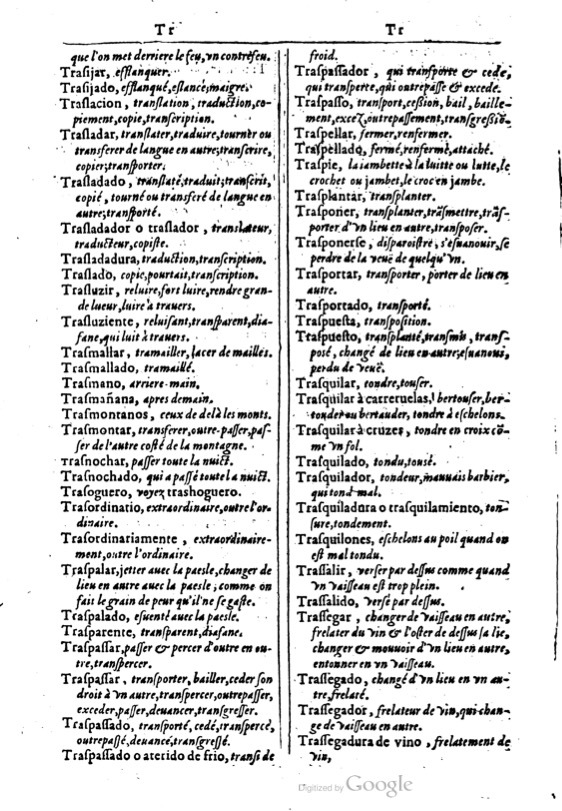 Tr
Tr
que l'on met derriere le feu, vn contrefeu.
Traſijar, efflanquer.
Traſijado, efflanqué, eslancé, maigre.
Traſlacion, translation, traduction, co-
piement, copie, transcription.
Traſladar, translater, traduire, tourner ou
transferer de langue en autre, transcrire,
copier, transporter.
Traſladado, translaté, traduit, transcrit,
copié, tourné ou transferé de langue en
autre, transporté.
Traſladador o traſlador, translateur,
traducteur, copiste.
Traſladadura, traduction, transcription.
Traſlado, copie, pourtait, transcription.
Traſluzir, reluire, fort luire, rendre gran-
de lueur, luire à trauers.
Traſluziente, reluisant, transparent, dia-
fane, qui luit à trauers.
Traſmallar, tramailler, lacer de mailles.
Traſmallado, tramaillé.
Traſmano, arriere-main.
Traſmañana, apres demain.
Traſmontanos, ceux de delà les monts.
Traſmontar, transferer, outre-passer, pas-
ser de l'autre costé de la montagne.
Traſnochar, passer toute la nuict.
Traſnochado, qui a passé toute la nuict.
Traſoguero, voyez trashoguero.
Traſordinatio, extraordinaire, outre l'or
dinaire.
Traſordinariamente, extraordinaire-
ment, outre l'ordinaire.
Traſpalar, jetter auec la paesle, changer de
lieu en autre auec la paesle; comme on
fait le grain de peur qu'il ne se gaste.
Traſpalado, esuenté auec la paesle.
Traſparente, transparent, diafane.
Traſpaſſar, passer & percer d'outre en ou-
tre, transpercer.
Traſpaſſar, transporter, bailler, ceder son
droit à vn autre, transpercer, outrepasser,
exceder, passer, deuancer, transgresser.
Traſpaſſado, transporté, cedé, transpercé,
outrepassé, deuancé, transgressé.
Traſpaſſado o aterido de frio, transi de
froid.
Traſpaſſador, qui transporte & cede,
qui transperce, qui outrepasse & excede.
Traſpaſſo, transport, cession, bail, baille-
ment, excez, outrepassement, transgressiō.
Traſpellar, fermer, renfermer.
Traſpellado, fermé, renfermé, attaché.
Traſpie, la iambette à la luitte ou lutte, le
crochet ou jambet, le croc en jambe.
Traſplantar, transplanter.
Traſponer, transplanter, trāsmettre, trāſ-
porter d'vn lieu en autre, transposer.
Traſponerſe, disparoistre, s'esuanouir, se
perdre de la veuë de quelqu'vn.
Traſportar, transporter, porter de lieu en
autre.
Traſportado, transporté.
Traſpueſta, transposition.
Traſpueſto, transplanté, transmis, trans-
posé, changé de lieu en autre, esuanoui,
perdu de veuë.
Traſquilar, tondre, touser.
Traſquilar à carreruelas, bertouser, ber-
tonder ou bertauder, tondre à eschelons.
Traſquilar à cruzes, tondre en croix cō-
me vn fol.
Traſquilado, tondu, tousé.
Traſquilador, tondeur, mauuais barbier,
qui tond mal.
Traſquiladura o traſquilamiento, ton-
sure, tondement.
Traſquilones, eschelons au poil quand on
est mal tondu.
Traſſalir, verser par dessus comme quand
vn vaisseau est trop plein.
Traſſalido, versé par dessus.
Traſſegar, changer de vaisseau en autre,
frelater du vin & l'oster de dessus sa lie,
changer & mouuoir d'vn lieu en autre,
entonner en vn vaisseau.
Traſſegado, changé d'vn lieu en vn au-
tre, frelaté.
Traſſegador, frelateur de vin, qui chan-
ge de vaisseau en autre.
Traſſegadura de vino, frelatement de
vin,
Digitized by Google